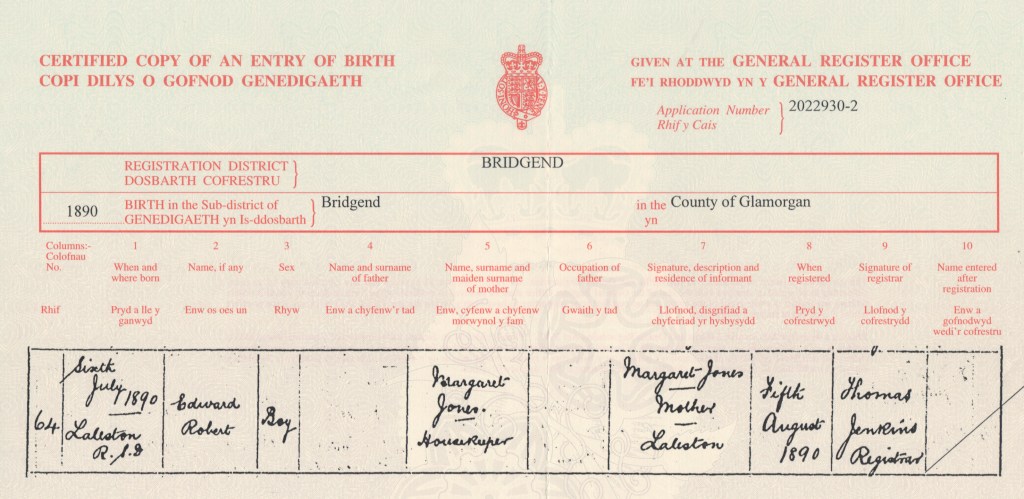 CERTIFIED COPY OF AN ENTRY OF BIRTH
COPI DILYS O GOFNOD GENEDIGAETH
GIVEN AT THE GENERAL REGISTER OFFICE
FE'I RHODDWYD YN Y GENERAL REGISTER OFFICE
Application Number
Rhif y Cais
2022930-2
REGISTRATION DISTRICT
DOSBARTH COFRESTRU
BRIDGEND
1890
BIRTH in the Sub-district of
GENEDIGAETH yn Is-ddosbarth
Bridgend
in the
yn
County of Glamorgan
Columns:-
Colofnau
1 2 3 4 5 6 7 8 9 10
No.
When and
where born
Name, if any
Sex
Name and surname
of father
Name, surname and
maiden surname
of mother
Occupation of
father
Signature, description and
residence of informant
When
registered
Signature of
registrar
Name entered
after
registration
Rhif
Pryd a lle y
ganwyd
Enw os oes un
Rhyw
Enw a chyfenw'r tad
Enw, cyfenw a chyfenw
morwynol y fam
Gwaith y tad
Llofnod, disgrifiad a
chyfeiriad yr hysbysydd
Pryd y
cofrestrwyd
Llofnod y
cofrestrydd
Enw a
gofnodwyd
wedi'r cofrestru
64
Sixth
July 1890
Laleston
R.S.D
Edward
Robert
Boy
Margaret
Jones.
Housekeeper
Margaret Jones
Mother
Laleston
Fifth
August
1890
Thomas
Jenkins
Registrar